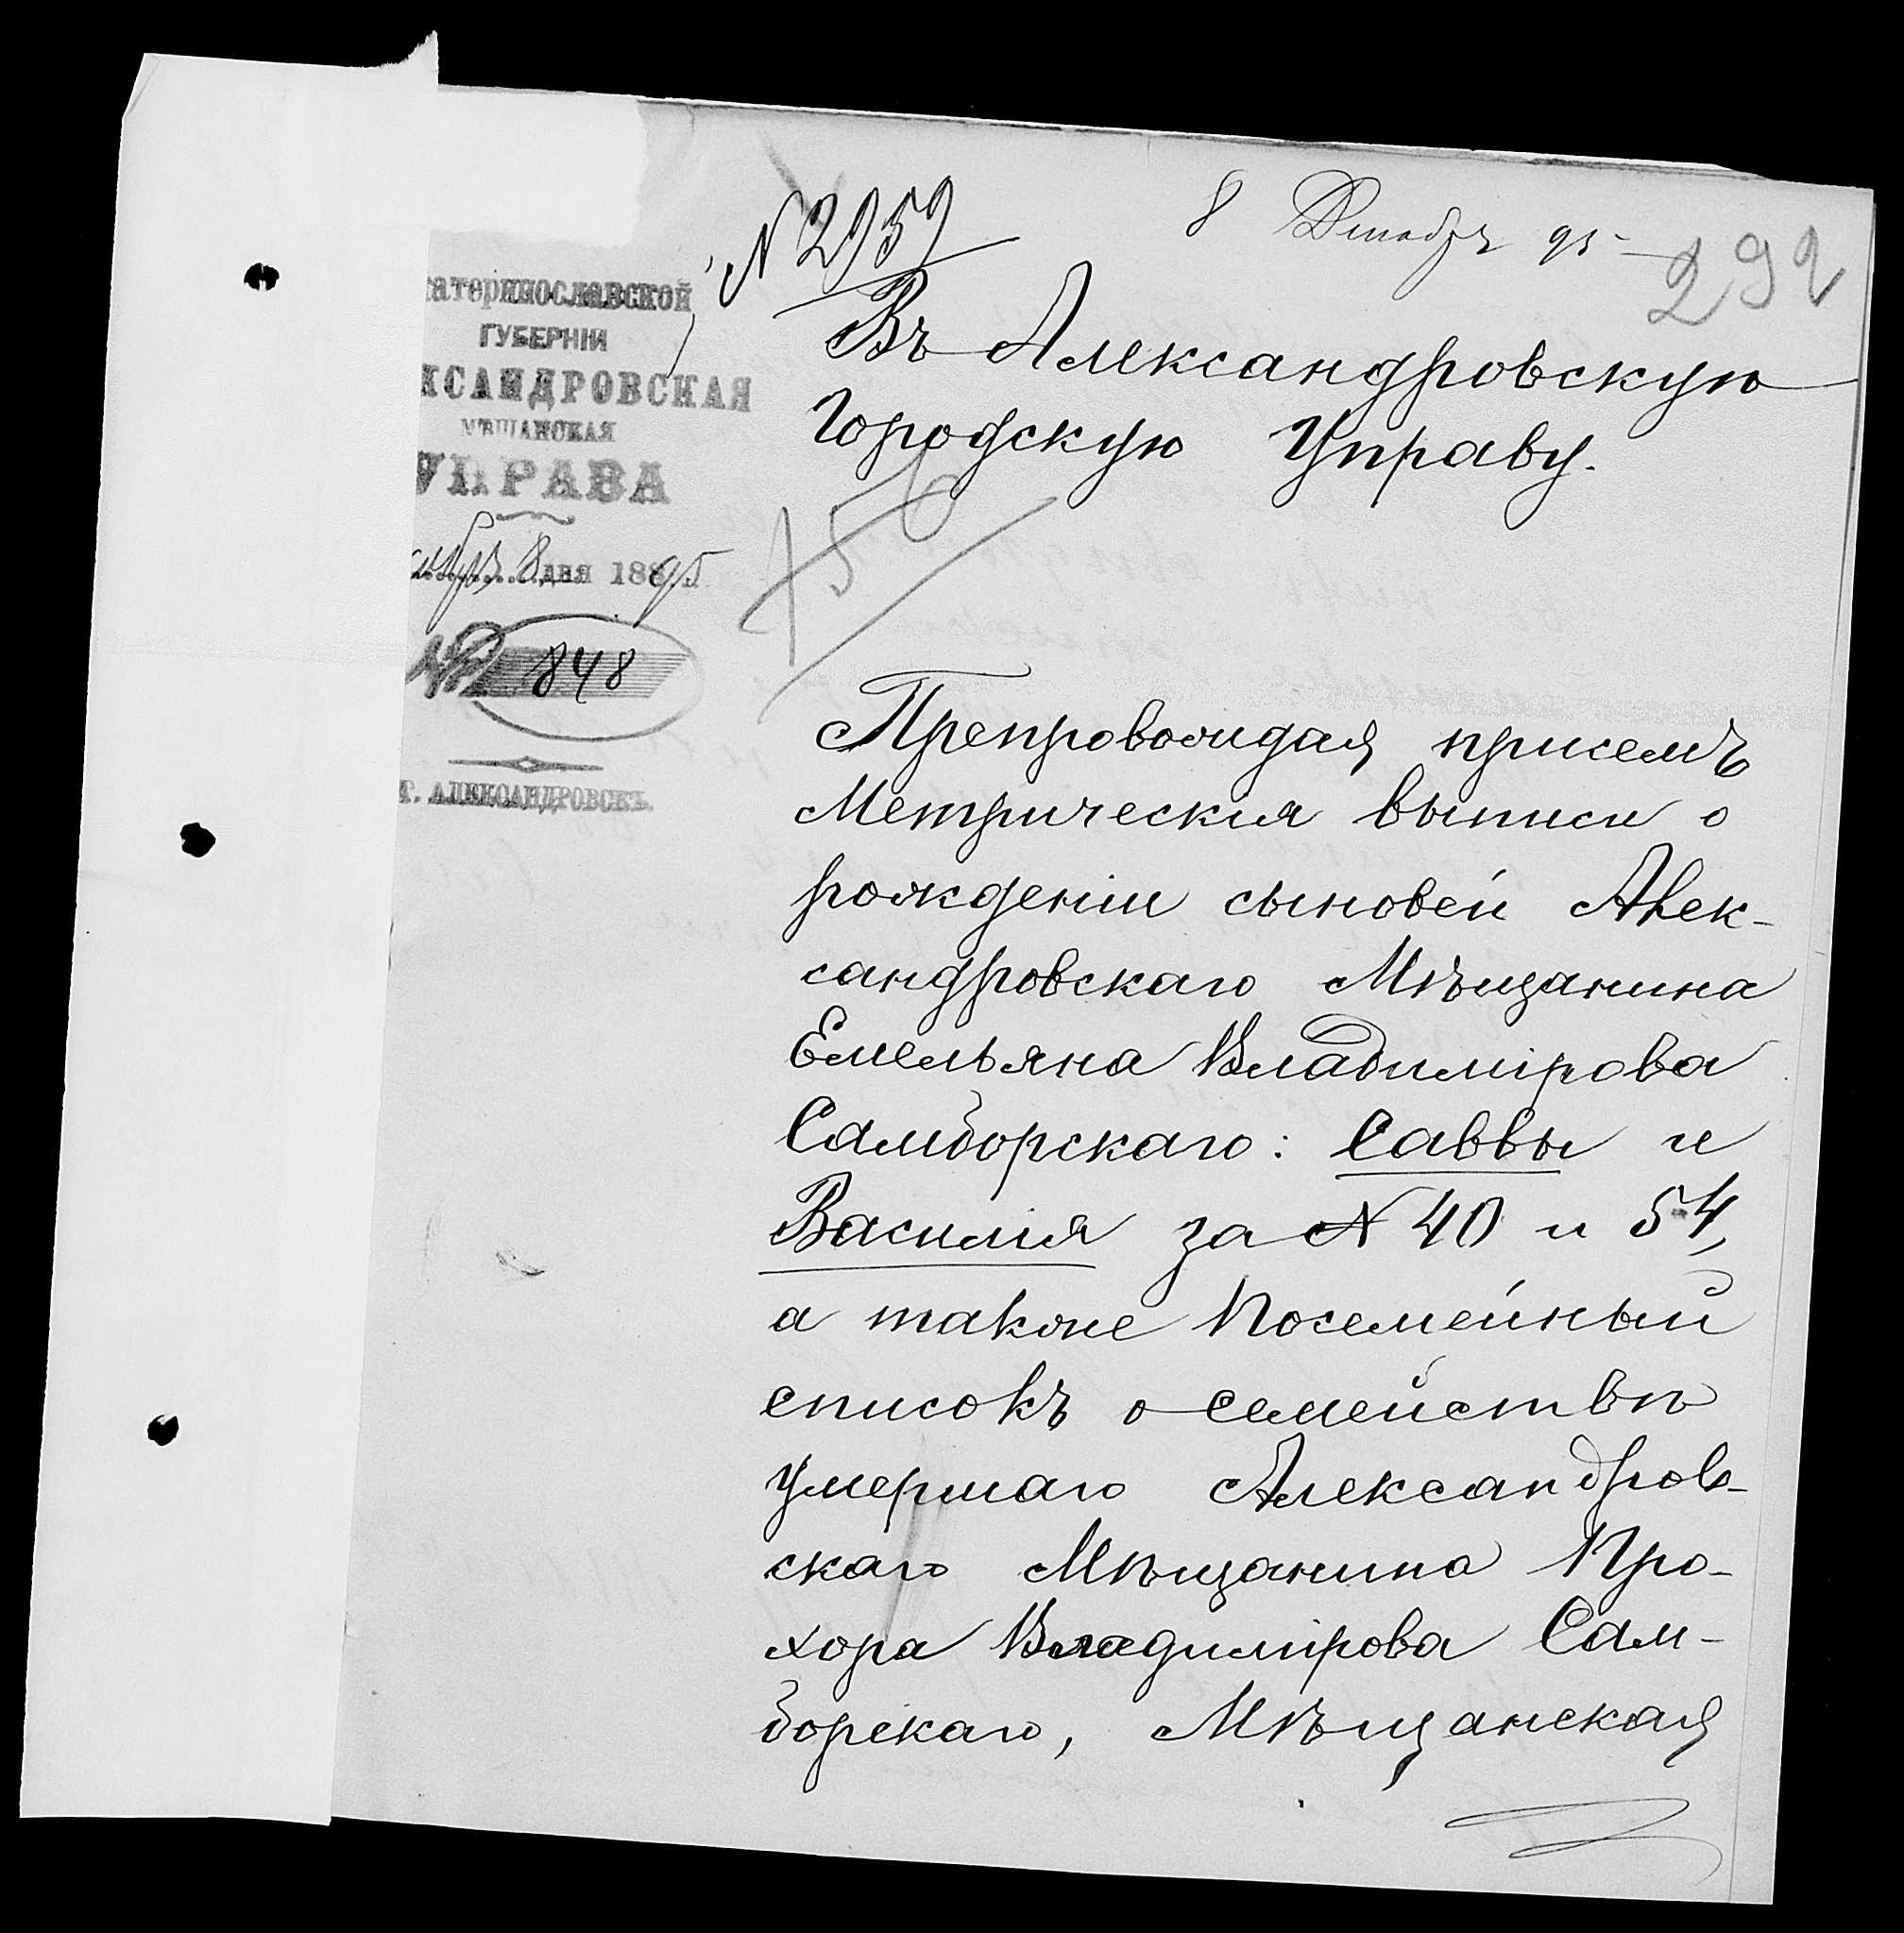 N 2959
8 Декабря 95
292
Въ Александровскую
Городскую Управу.
катеринославской
ГУБЕРНІИ
КСАНДРОВСКАЯ
МѢЩАНСКАЯ
УПРАВА
8 дня 1895
№ 848
г. АЛЕКСАНДРОВСКЪ.
156
Препровождая присемъ
Метрическія выписи о
рожденіи сыновей Алек-
сандровскаго Мѣщанина
Емельяна Владимірова
Самборскаго: Саввы и
Василія за N 40 и 54,
а также Посемейный
списокъ о семействѣ
умершаго Александров-
скаго Мѣщанина Про-
хора Владимірова Сам-
борскаго, Мѣщанская